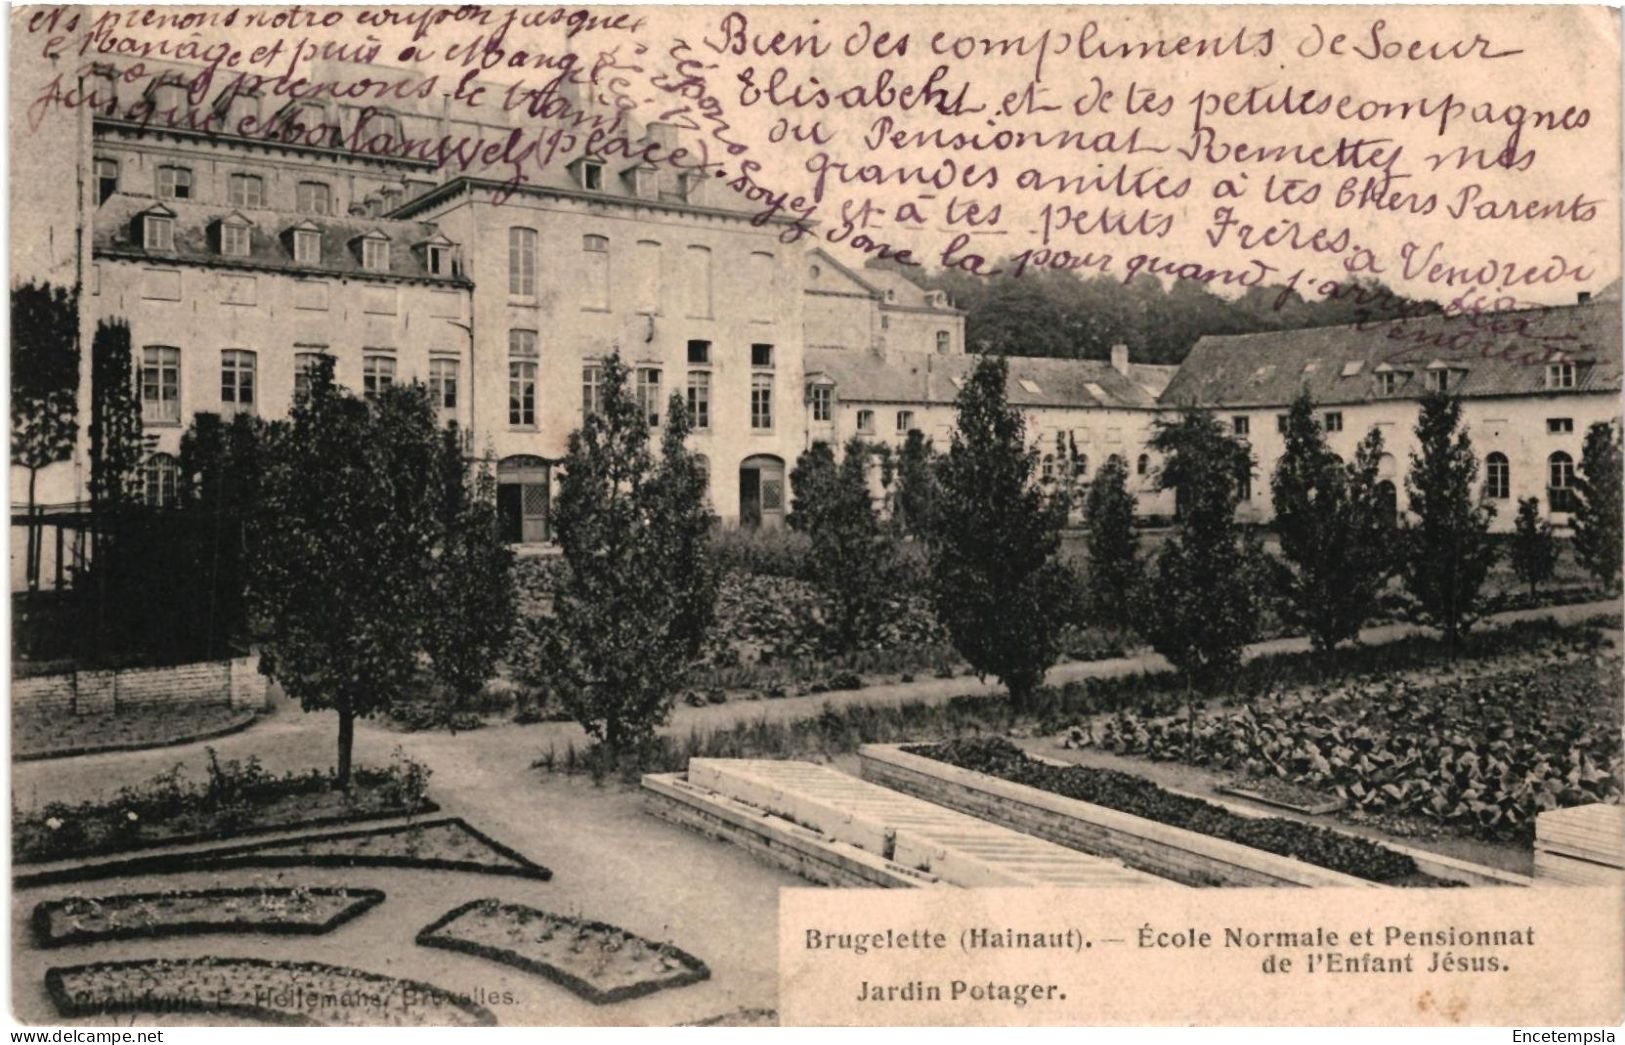 Ns prenons notre coupon jusque
Manage et puis à Mange
nous prenons le tram
jusque Morlanwelz (place).
réponse
Soyez donc la pour quand j'arri
Bien des compliments de Soeur
Elisabeht et de tes petites compagnes
du Pensionnat Remettez mes
grandes amitiés à tes Chers Parents
et à tes petits Frères.
à Vendredi
Vendredi
Brugelette (Hainaut). — École Normale et Pensionnat
de l'Enfant Jésus.
Jardin Potager.
Phototypie E. Hellemans, Bruxelles.
Encetempsla